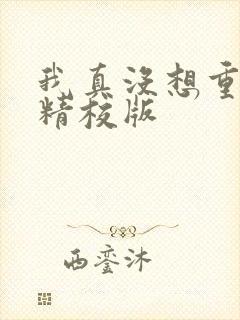 我真没想重
精校版
西銮沐